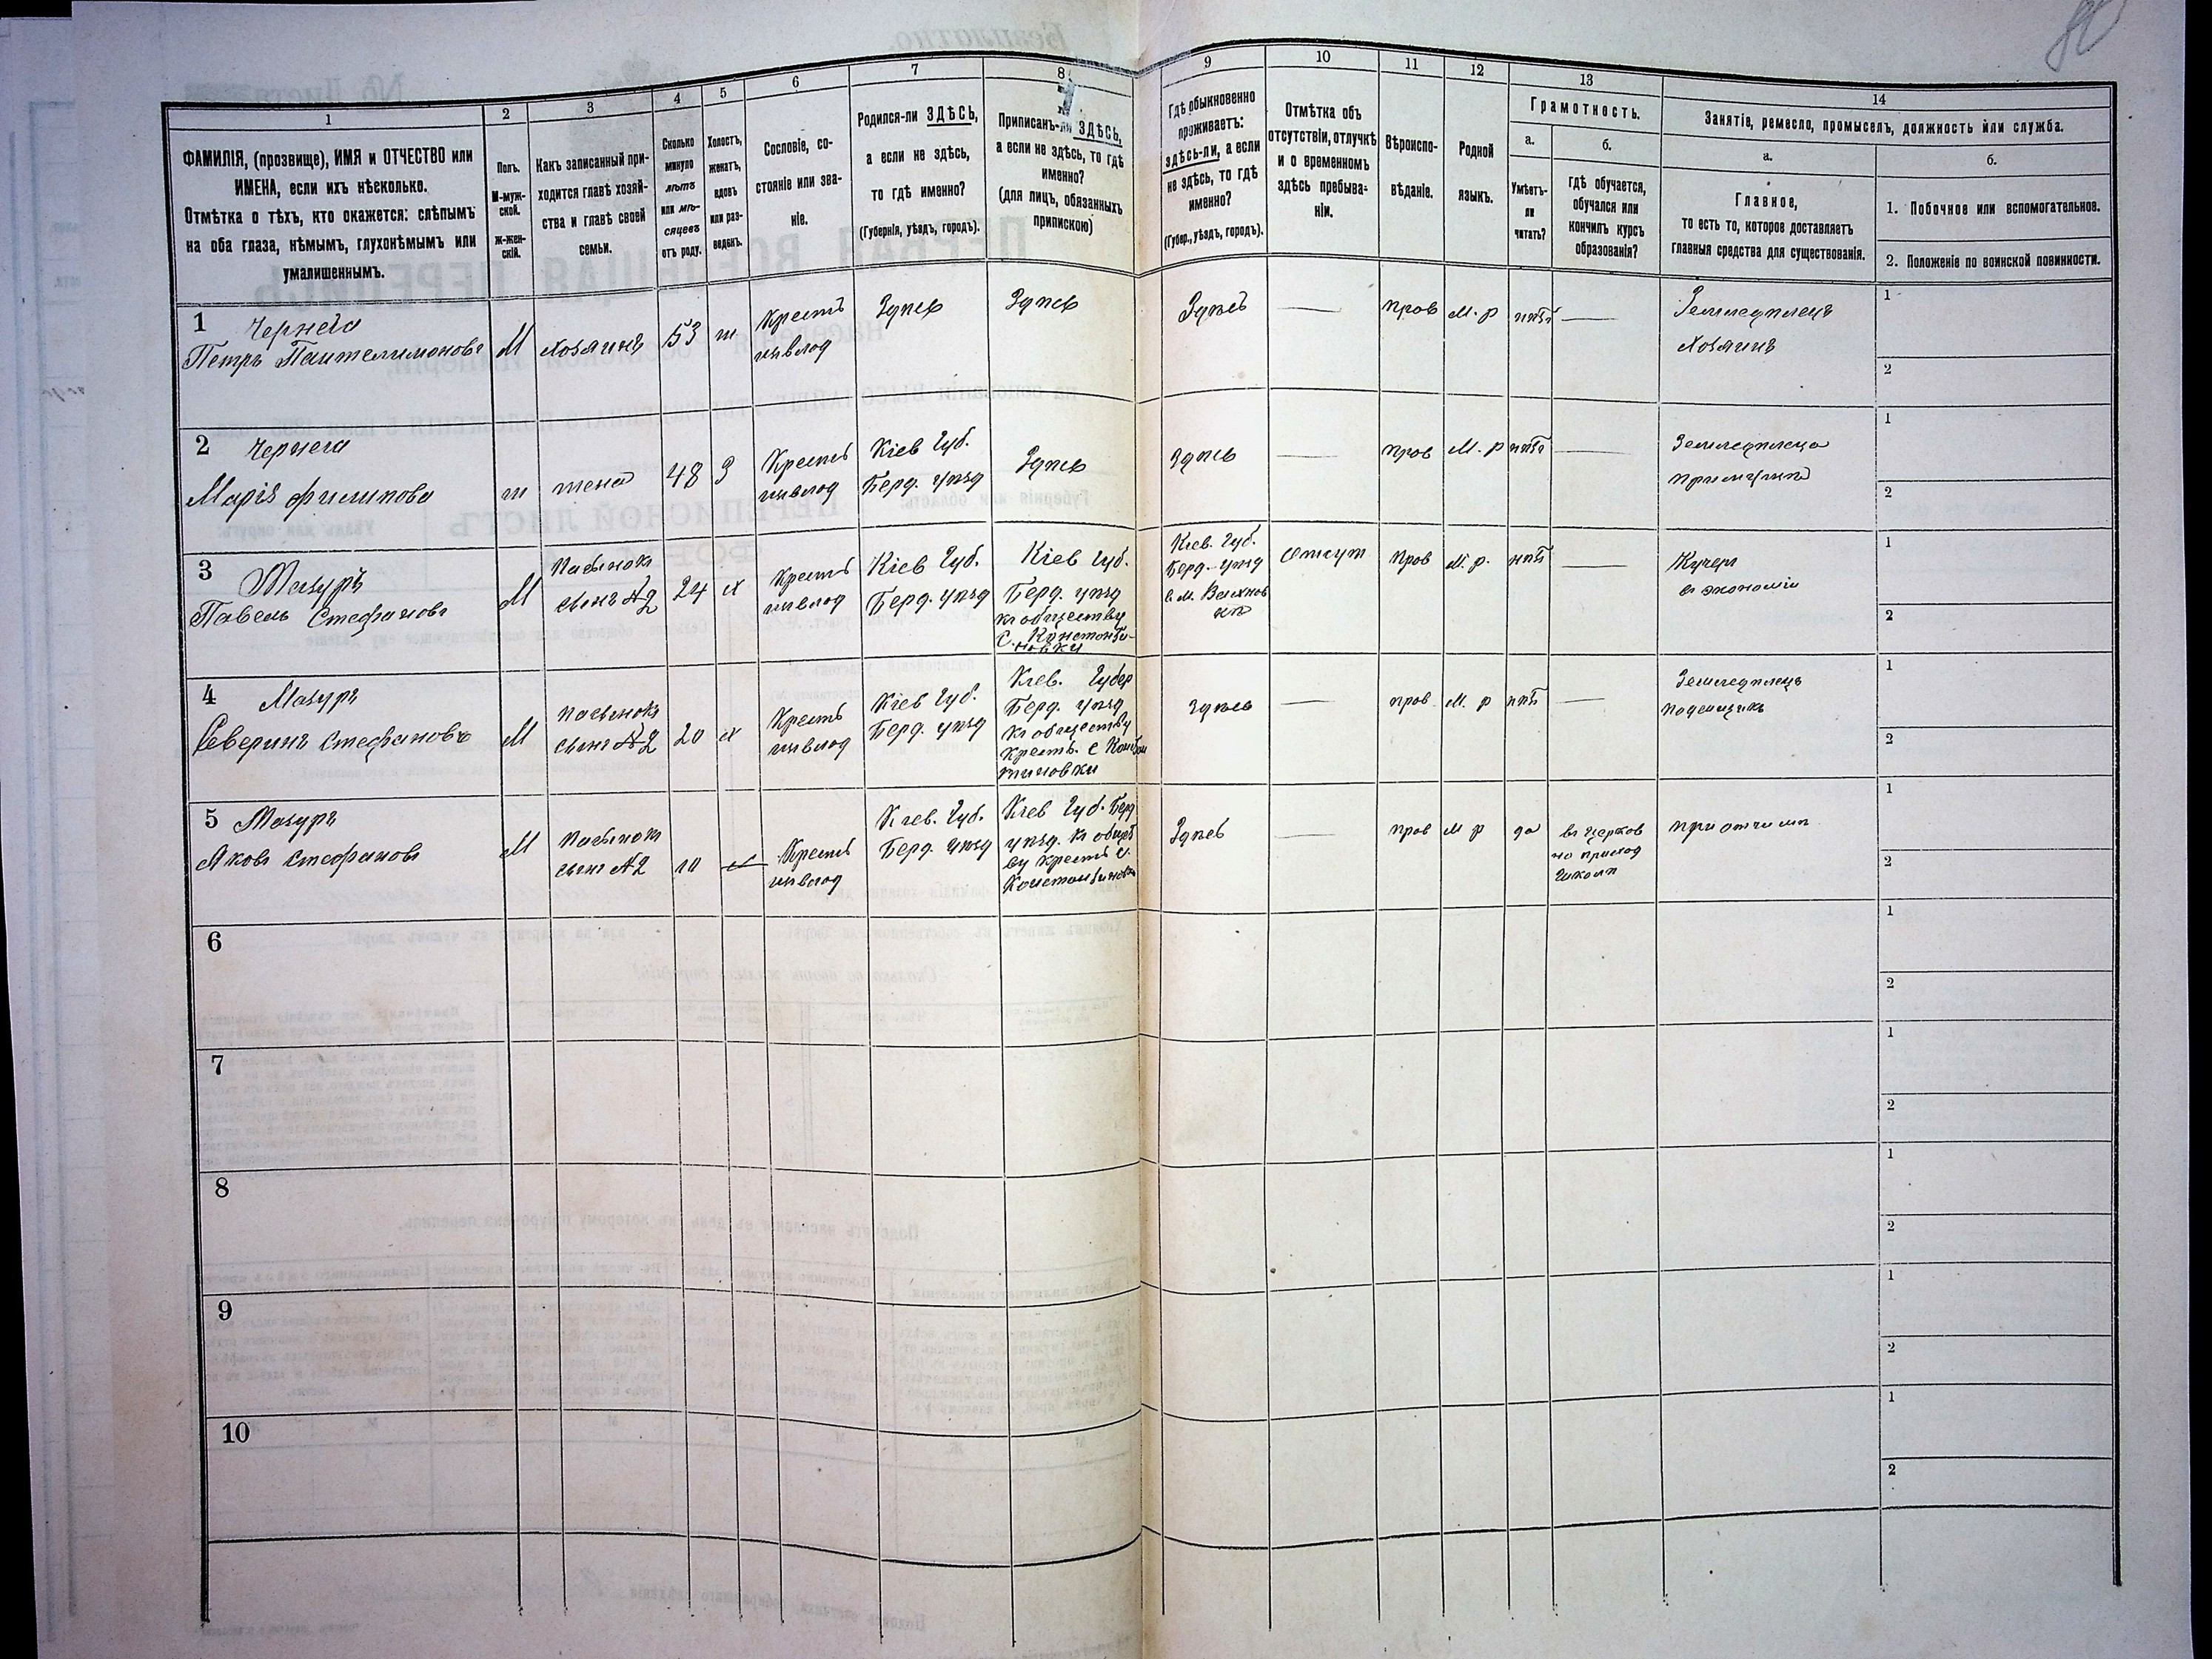 80
1
2
3
4
5
6
7
8
9
10
11
12
13
14
ФАМИЛІЯ, (прозвище), ИМЯ и ОТЧЕСТВО или
ИМЕНА, если ихъ нѣсколько.
Отмѣтка о тѣхъ, кто окажется: слѣпымъ
на оба глаза, нѣмымъ, глухонѣмымъ или
умалишеннымъ.
Полъ.
М-муж-
ской.
ж-жен-
скій.
Какъ записанный при-
ходится главѣ хозяй-
ства и главѣ своей
семьи.
Сколько
минуло
лѣтъ
или мѣ-
сяцевъ
отъ роду.
Холостъ,
женатъ,
вдовъ
или раз-
веденъ.
Сословіе, со-
стояніе или зва-
ніе.
Родился-ли ЗДѢСЬ,
а если не здѣсь,
то гдѣ именно?
(Губернія, уѣздъ, городъ).
Приписанъ-ли ЗДѢСЬ,
а если не здѣсь, то гдѣ
именно?
(для лицъ, обязанныхъ
припискою)
Гдѣ обыкновенно
проживаетъ:
здѣсь-ли, а если
не здѣсь, то гдѣ
именно?
(Губер., уѣздъ, городъ).
Отмѣтка объ
отсутствіи, отлучкѣ
и о временномъ
здѣсь пребыва-
ніи.
Вѣроиспо-
вѣданіе.
Родной
языкъ.
Грамотность.
а.
б.
Умѣетъ-
ли
читать?
Гдѣ обучается,
обучался или
кончилъ курсъ
образованія?
Занятіе, ремесло, промыселъ, должность или служба.
а.
б.
Главное,
то есть то, которое доставляетъ
главныя средства для существованія.
1. Побочное или вспомогательное.
2. Положеніе по воинской повинности.
1
Чернега
Петръ Пантелимоновъ
М
Хозяинъ
53
ж
Крестъ
ивлад
Здѣсь
Здѣсь
Здѣсь
—
пров
М. р
нѣтъ
—
Земледѣлецъ
Хозяинъ
1
2
2
Чернега
Марія Филипова
ж
жена
48
З
Крестъ
ивлад
Кіев Губ.
Берд. уѣзд
Здѣсь
Здѣсь
—
пров
М. р
нѣтъ
—
Земледѣлеца
при мужѣ
1
2
3
Мазуръ
Павелъ Стефановъ
М
Пасынокъ
сынъ №2
24
х
Крестъ
ивлад
Кіев Губ.
Берд. уѣзд
Кіев Губ.
Берд. уѣзд
къ обществу
С. Константи-
новки
Кіев. Губ.
Берд. уѣзд
в м.
отсут
пров
М. р.
нѣтъ
—
Кучеръ
въ экономіи
1
2
4
Мазуръ
Северинъ Стефановъ
М
Пасынокъ
сынъ №2
20
х
Крестъ
ивлад
Кіев Губ.
Берд. уѣзд
Кіев. Губер
Берд. уѣзд
къ обществу
крестъ. с Констан
тиновки
Здѣсь
—
пров
М. р
нѣтъ
—
Земледѣлецъ
поденщикъ
1
2
5
Мазуръ
Яковъ Стефановъ
М
Пасынокъ
сынъ №2
10
х
Крестъ
ивлад
Кіев. Губ.
Берд. уѣзд
Кіев Губ. Берд
уѣзд. къ общест
ву крестъ с.
Константиновки
Здѣсь
—
пров
М р
да
въ церков
но приход
школѣ
при отчимѣ
1
2
6
1
2
7
1
2
8
1
2
9
1
2
10
1
2